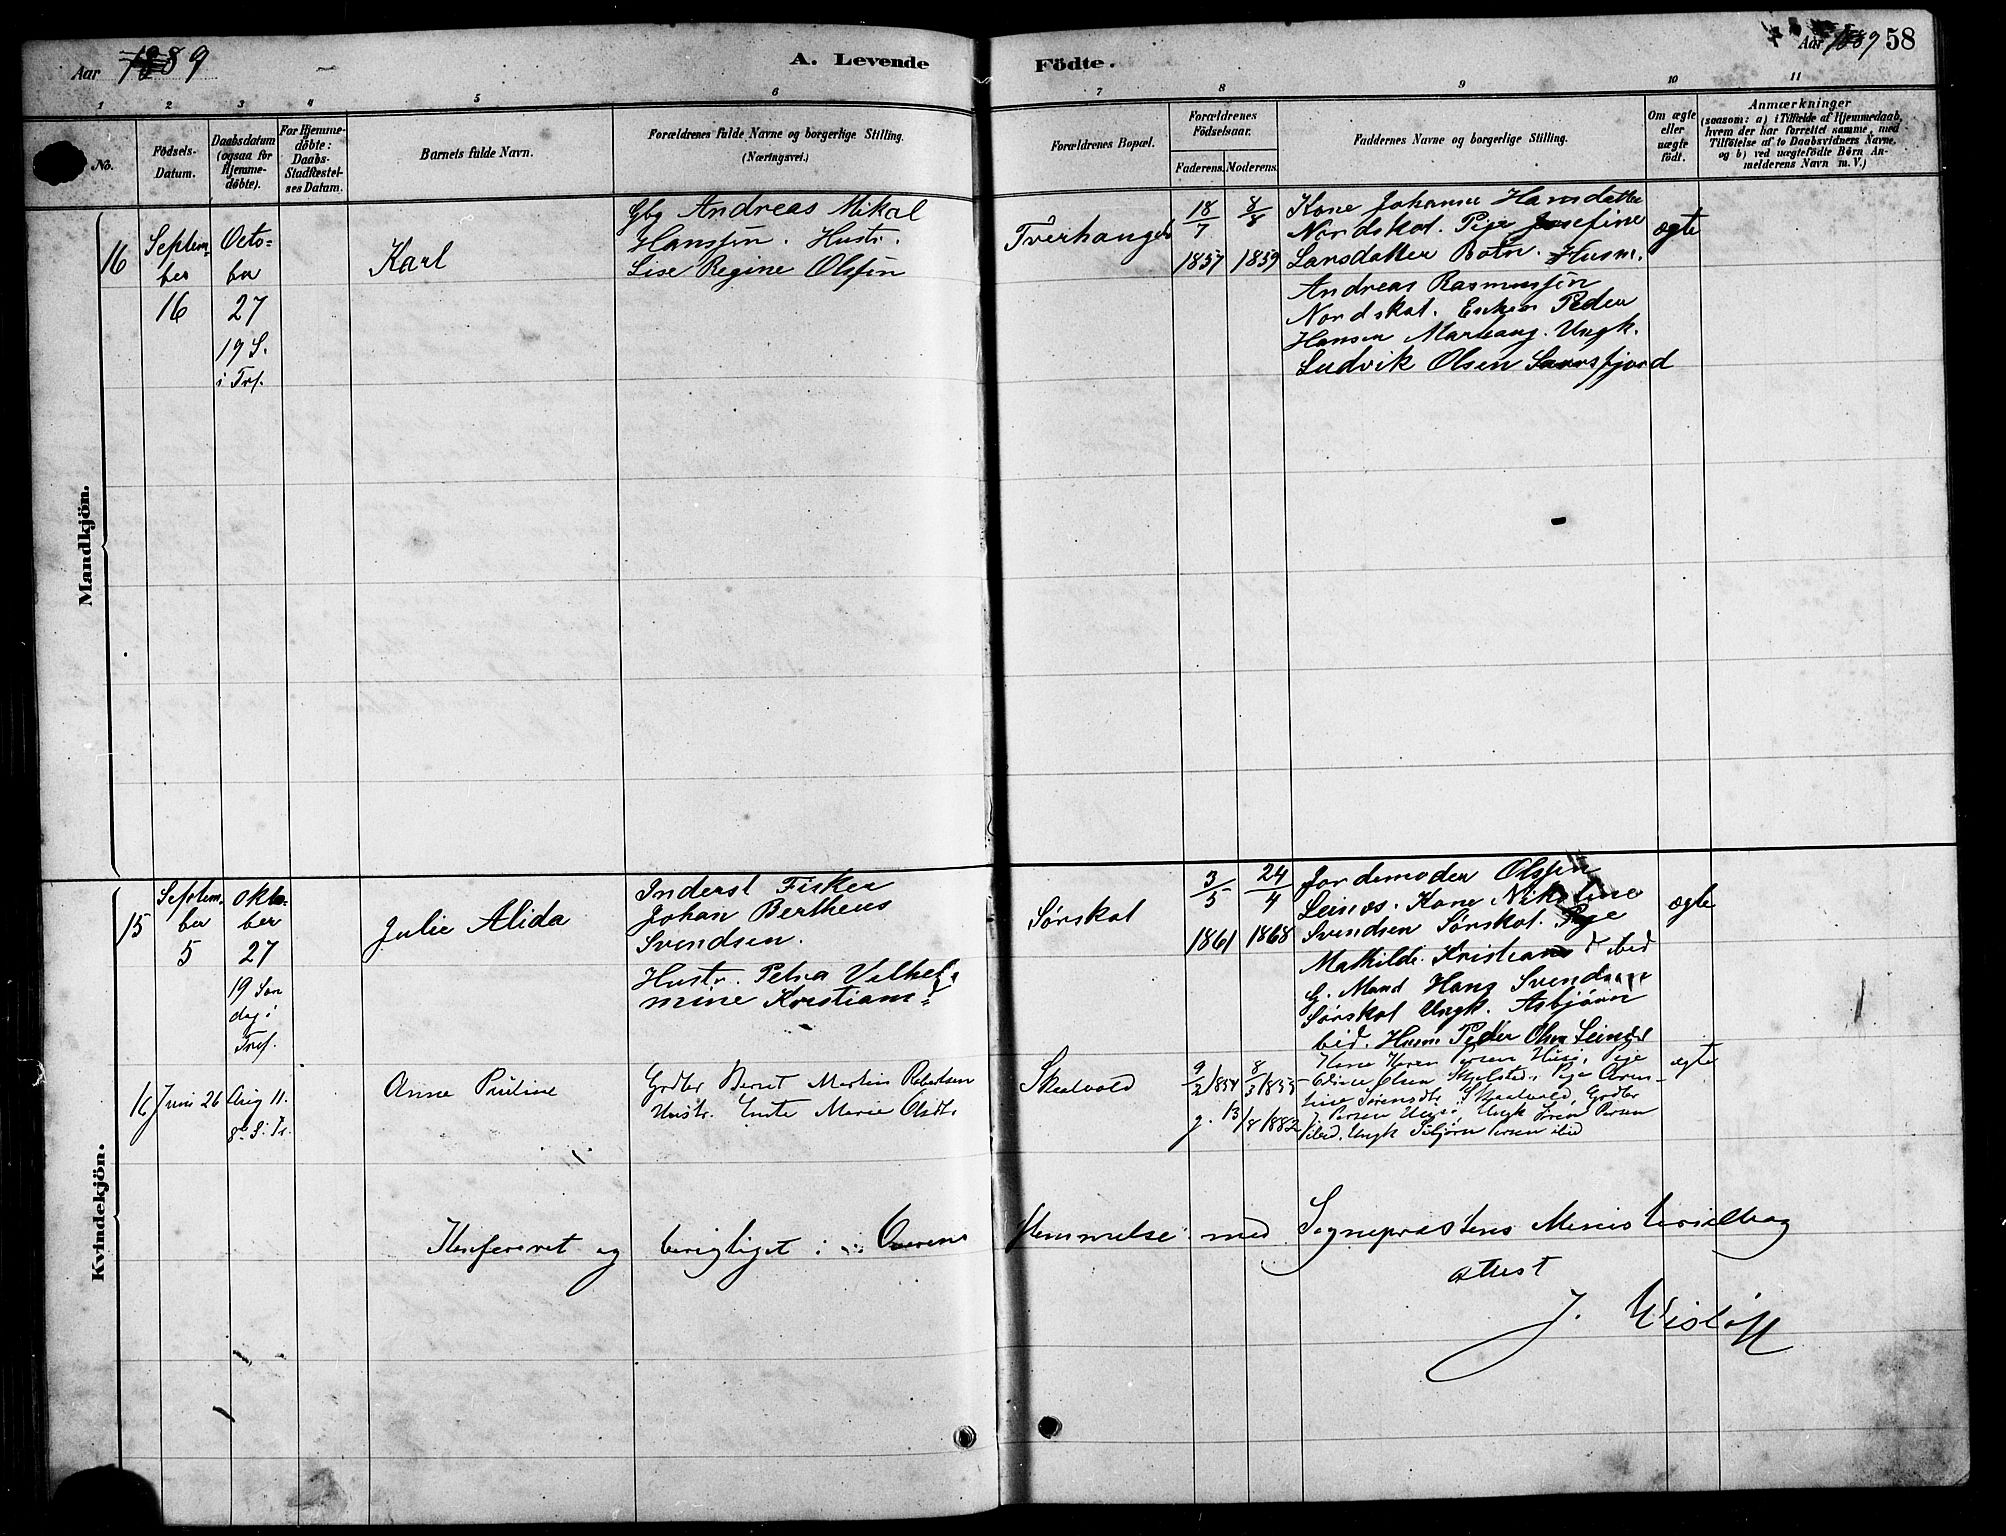 Aar 1889
A. Levende Födte.
Aar 1889 58
1 2 3 4 5 6 7 8 9 10 11
No.
Födsels-
Datum.
Daabsdatum
(ogsaa for
Hjemme-
döbte).
For Hjemme-
döbte:
Daabs-
Stadfæstel-
ses Datum.
Barnets fulde Navn.
Forældrenes fulde Navne og borgerlige Stilling.
(Næringsvei.)
Forældrenes Bopæl.
Forældrenes
Födselsaar.
Faderens. Moderens.
Faddernes Navne og borgerlige Stilling.
Om ægte
eller
uægte
födt.
Anmærkninger
(saasom: a) i Tilfælde af Hjemmedaab,
hvem der har forrettet samme, med
Tilföielse af to Daabsvidners Navne,
og b) ved uægtefödte Börn An-
melderens Navn m. V.)
Mandkjön.
16
Septem-
ber
16
Octo-
ber
27
19 S.
i Tref.
Karl
Gbg Andreas Mikal
Hanssøn. Hustr.
Lise Regine Olsføn
Tverhanger
18/7
1857
8/8
1859
Kone Johanna Hansdatter
Nordskot. Pige Josefine
Larsdatter Botn. Husm.
Andreas Rasmussøn
Nordskot. Enkem Peder
Hansen Marhaug. Ungk.
Ludvik Olsen Sørfjord
ægte
Kvindekjön.
15
Septem
ber
5
Okto-
ber
27
19 Søn
dag i
Tref.
Julie Alida
Inderst Fisker
Johan Bertheus
Svendsen.
Hustr. Petra Vilhel-
mine Kristians
Sørskot
3/5
1861
24/4
1868
Jordemoder Olssen
Leinæs. Kone Nikoline
Svendsen Sørskot. Pige
Mathilde Kristians d ibid
G. Mand Hans Svendsen
Sørskot Ungk. Asbjørn
ibid. Husm Peder Olsn Leinæs
ægte
16
Juni 26
Aug 11.
8de S. Tr.
Anne Pauline
Grdbr Bernt Martin Robertsen
Hustr. Marie Olsdtr
Skaalvold
9/2 1854
8/3 1855
g. 13/8 1882
Kone Karen Persen Pige
Olsen Pige Oline-
Sørensdtr. Skaalvold, Grdbr
J. Persen Ungk Persen
ibid. Ungk Persen ibid
ægte
Konfereret og berigtiget i Overens
stemmelse med Sognepræstens Ministerialbog
attest
J. Wisløff